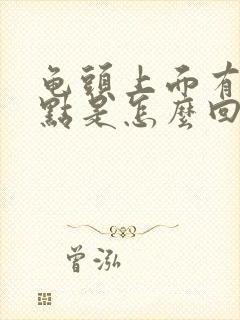 龟頭上面有
點是怎麼回
曾泓